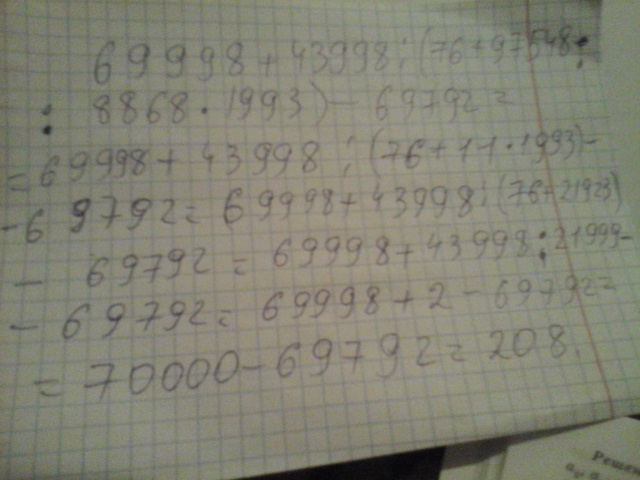 69998 + 43998 : (76 + 97548 :
: 8868 · 1993) - 69792 =
= 69998 + 43998 : (76 + 11 · 1993) -
- 69792 = 69998 + 43998 : (76 + 21923)
- 69792 = 69998 + 43998 : 21999 -
- 69792 = 69998 + 2 - 69792 =
= 70000 - 69792 = 208.
Решен